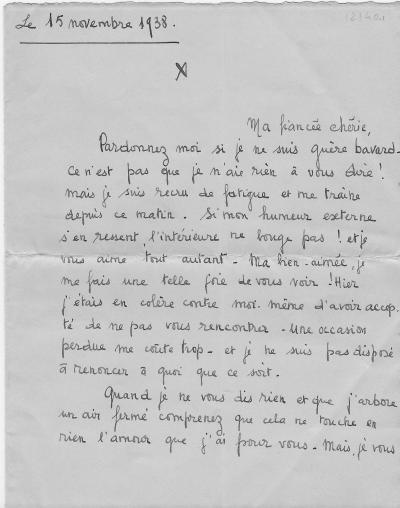 Le 15 novembre 1938.
Ma fiancée chérie,
Pardonnez moi si je ne suis guère bavard.
Ce n'est pas que je n'aie rien à vous dire !
mais je suis recru de fatigue et me traîne
depuis ce matin. Si mon humeur externe
s'en ressent, l'intérieure ne bouge pas ! et je
vous aime tout autant. Ma bien-aimée, je
me fais une telle joie de vous voir ! Hier
j'étais en colère contre moi-même d'avoir accep
té de ne pas vous rencontrer. Une occasion
perdue me coûte trop - et je ne suis pas disposé
à renoncer à quoi que ce soit.
Quand je ne vous dis rien et que j'arbore
un air fermé comprenez que cela ne touche en
rien l'amour que j'ai pour vous. Mais, je vous